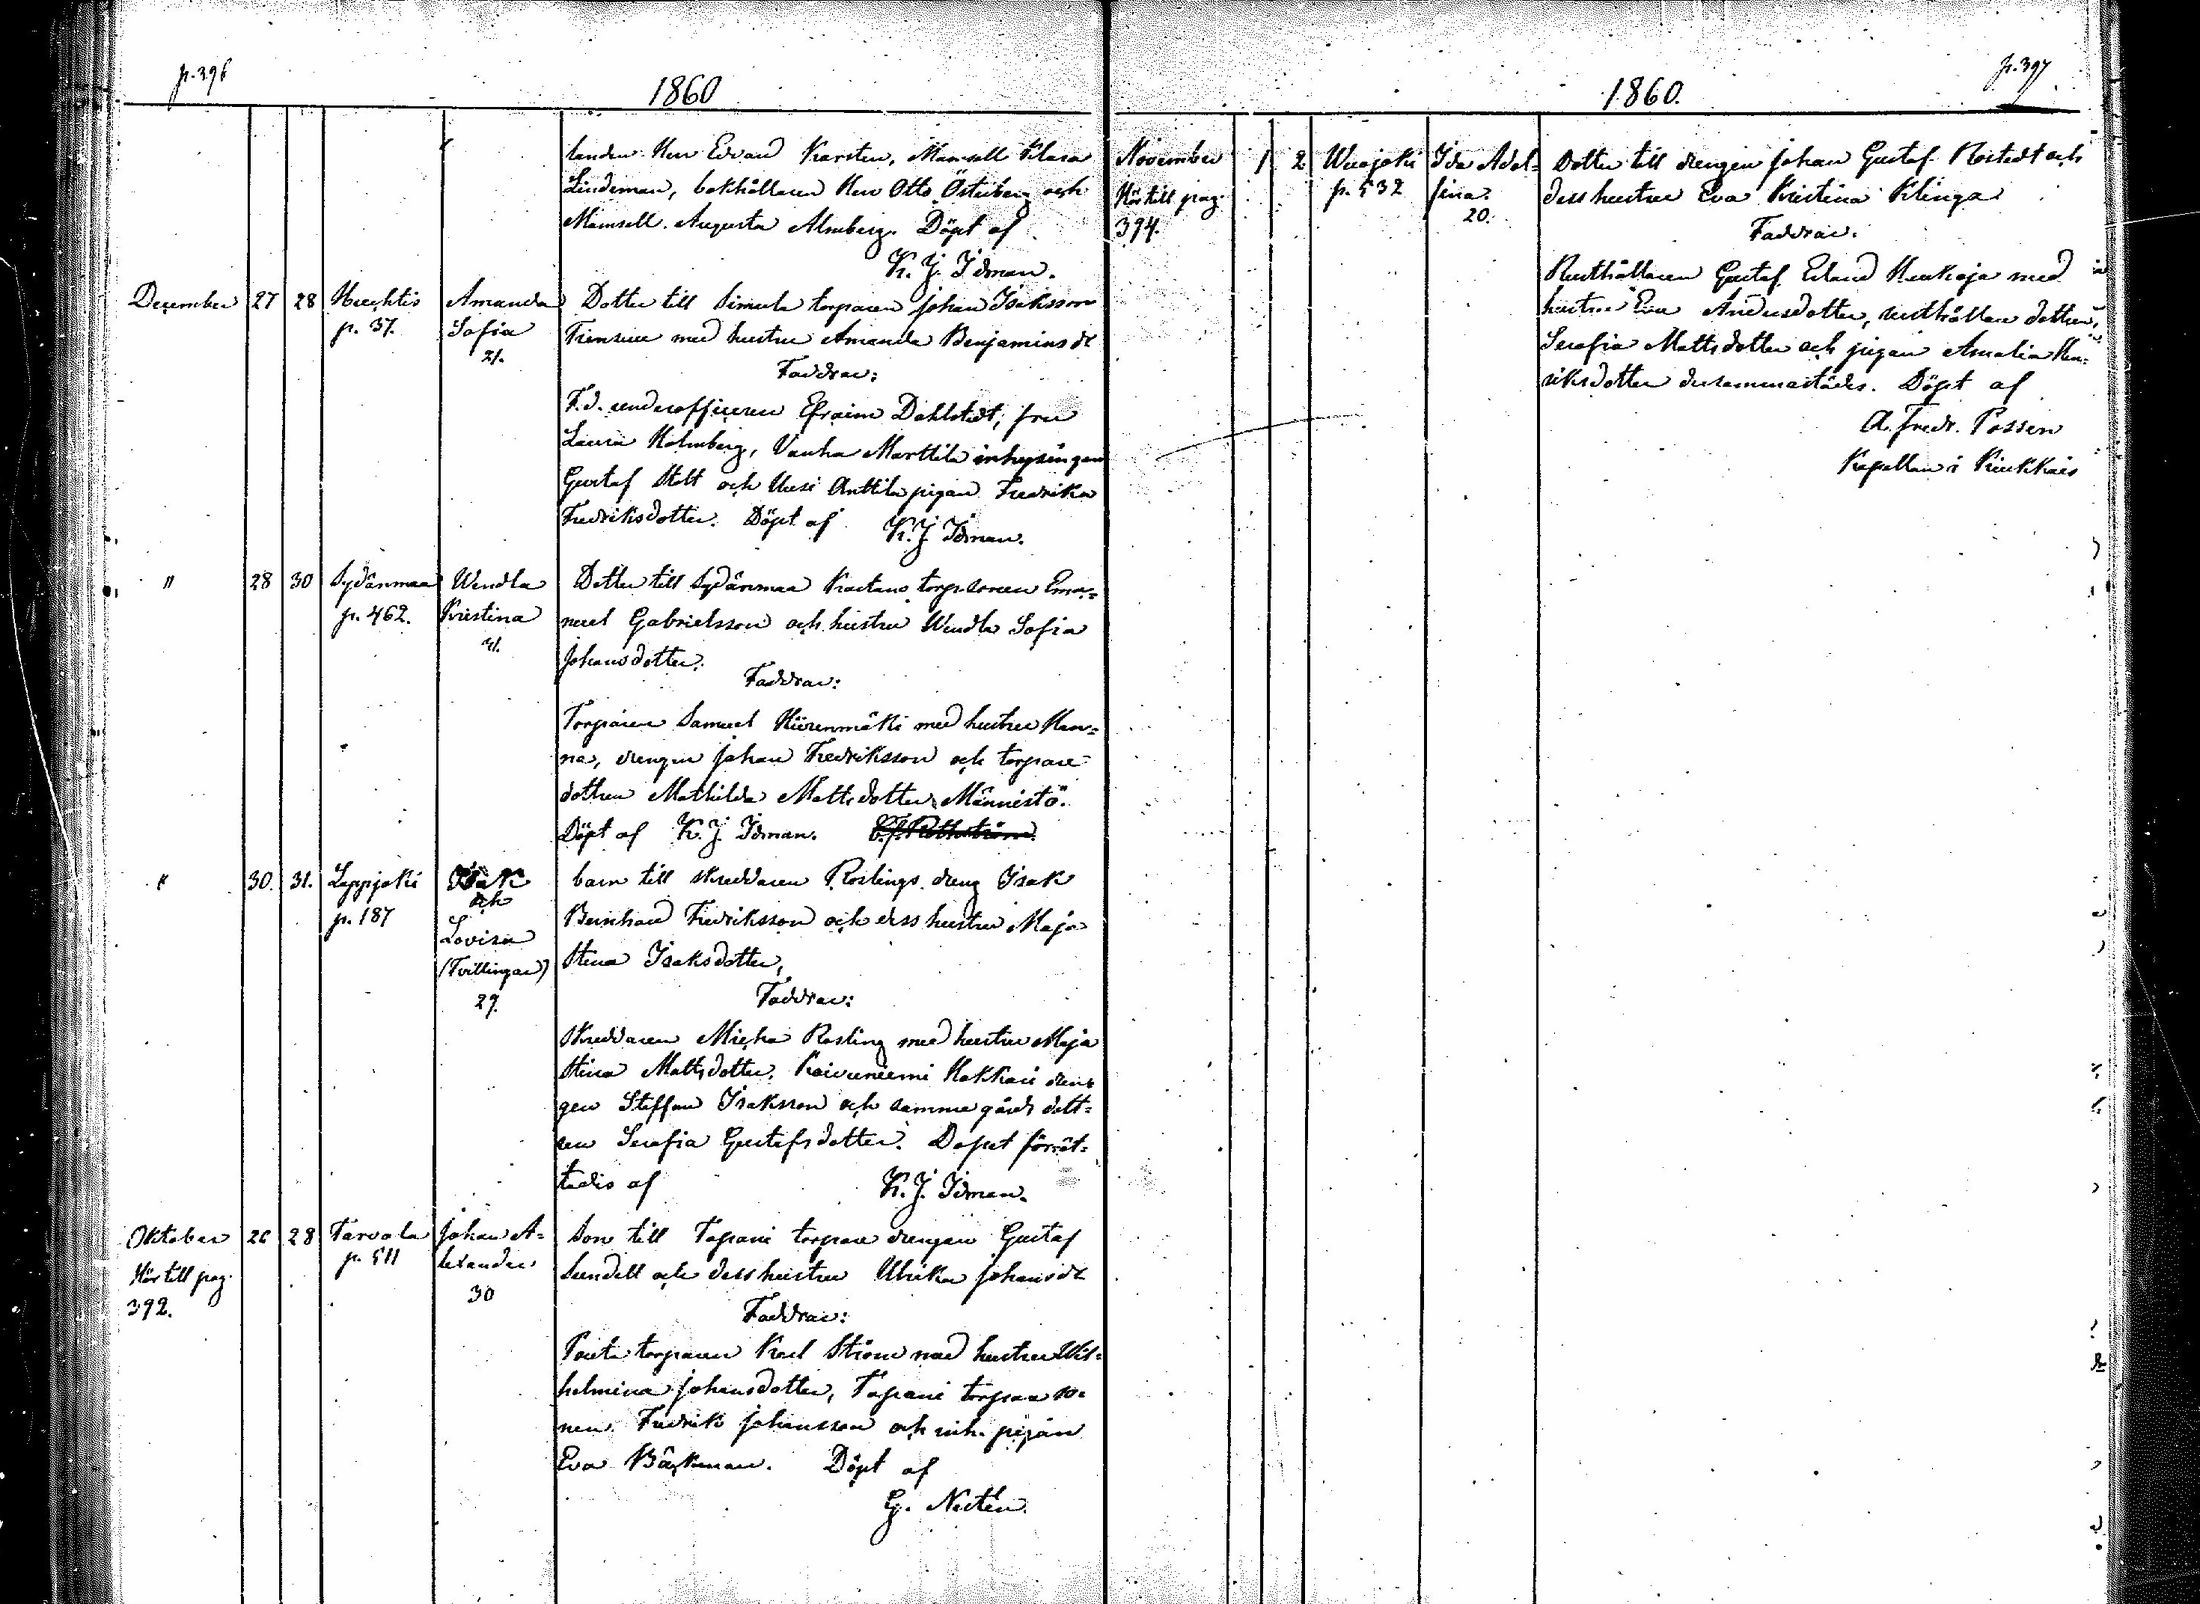 p. 396
1860
landen Herr Edvard Karsten, Mamsell Klara
Lindeman, bokhållaren Herr Otto Österberg och
Mamsell Augusta Almberg. Döpt af
K. J. Idman.
December 27 28 p. 37. Amanda Sofia 21. Dotter till Simula torparen Johan Isaksson
med hustru Amanda Benjaminsdr
Faddrar:
F.d. underofficeren Efraim Dahlstedt, fru
Laura Holmberg, Vanha Marttila inhysingen
Gustaf Stolt och Uusi Anttila pigan Fredrika
Fredriksdotter. Döpt af K. J. Idman.
" 28 30 Sydänmaa p. 462. Wendla Kristina 21. Dotter till Sydänmaa torp.sonen Ema=
nuel Gabrielsson och hustru Wendla Sofia
Johansdotter.
Faddrar:
Torparen Samuel Hiirenmäki med hustru Han=
na, drengen Johan Fredriksson och torpare
dottren Mathilda Mattsdotter Männistö.
Döpt af K. J. Idman.
" 30. 31. Leppjoki p. 187 Isak och Lovisa (Tvillingar) 29. barn till skreddaren Roslings dreng Isak
Bernhard Fredriksson och dess hustru Maja
Stina Isaksdotter,
Faddrar:
Skreddaren Micha Rosling med hustru Maja
Stina Mattsdotter, Kaivuniemi Kakkari dren=
gen Staffan Isaksson och samma gårds dott=
ren Serafia Gustafsdotter. Dopet förrät=
tadis af K. J. Idman.
Oktober 26 28 Tarvala p. 511 Johan A= lexander 30 Son till Tapani torpare drengen Gustaf
Hör till pag. 392. Sundell och dess hustru Ulrika Johansdr
Faddrar:
torparen Karl Ström med hustru Wil=
helmina Johansdotter, Tapani torpare so=
nen Fredrik Johansson och inh. pigan
Eva Bäckman. Döpt af
G. Neitén
p. 397
1860.
November 1 2 p. 532 Ida Adol= fina. 20. Dotter till drengen Johan Gustaf Rostedt och
Hör till pag. 394. dess hustru Eva Kristina Klinga
Faddrar.
Rusthållaren Gustaf Erland med
hustru Eva Andersdotter, rusthållare dottren
Serafia Mattsdotter och pigan Amalia Hen=
riksdotter dersammastädes. Döpt af
A. Fredr. Passen
Kapellan i Kiukkais